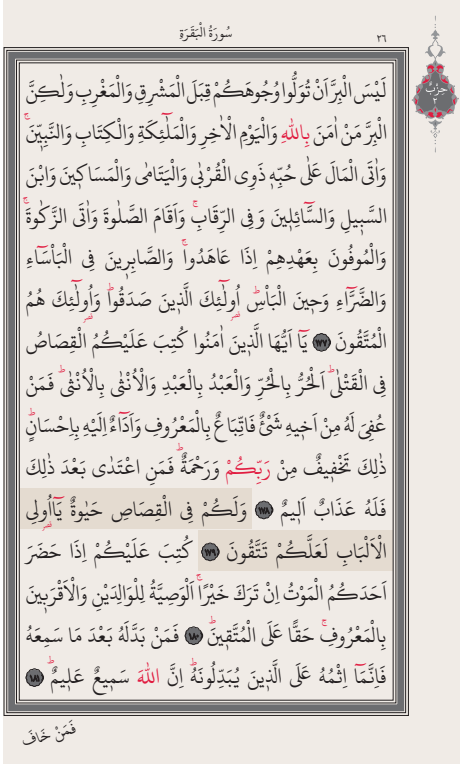 سُورَةُ الْبَقَرَةِ
٢٦
حِزْبٌ
٢
لَيْسَ الْبِرَّ اَنْ تُوَلُّوا وُجُوهَكُمْ قِبَلَ الْمَشْرِقِ وَالْمَغْرِبِ وَلٰكِنَّ
الْبِرَّ مَنْ اٰمَنَ بِاللّٰهِ وَالْيَوْمِ الْاٰخِرِ وَالْمَلٰٓئِكَةِ وَالْكِتَابِ وَالنَّبِيّٖنَۚ
وَاٰتَى الْمَالَ عَلٰى حُبِّهٖ ذَوِي الْقُرْبٰى وَالْيَتَامٰى وَالْمَسَاكٖينَ وَابْنَ
السَّبٖيلِ وَالسَّٓائِلٖينَ وَفِي الرِّقَابِۚ وَاَقَامَ الصَّلٰوةَ وَاٰتَى الزَّكٰوةَۚ
وَالْمُوفُونَ بِعَهْدِهِمْ اِذَا عَاهَدُواۚ وَالصَّابِرٖينَ فِي الْبَأْسَٓاءِ
وَالضَّرَّٓاءِ وَحٖينَ الْبَأْسِؕ اُولٰٓئِكَ الَّذٖينَ صَدَقُواؕ وَاُولٰٓئِكَ هُمُ
الْمُتَّقُونَ ﴿١٧٧﴾ يَٓا اَيُّهَا الَّذٖينَ اٰمَنُوا كُتِبَ عَلَيْكُمُ الْقِصَاصُ
فِي الْقَتْلٰىؕ اَلْحُرُّ بِالْحُرِّ وَالْعَبْدُ بِالْعَبْدِ وَالْاُنْثٰى بِالْاُنْثٰىؕ فَمَنْ
عُفِيَ لَهُ مِنْ اَخٖيهِ شَيْءٌ فَاتِّبَاعٌ بِالْمَعْرُوفِ وَاَدَٓاءٌ اِلَيْهِ بِاِحْسَانٍؕ
ذٰلِكَ تَخْفٖيفٌ مِنْ رَبِّكُمْ وَرَحْمَةٌؕ فَمَنِ اعْتَدٰى بَعْدَ ذٰلِكَ
فَلَهُ عَذَابٌ اَلٖيمٌ ﴿١٧٨﴾ وَلَكُمْ فِي الْقِصَاصِ حَيٰوةٌ يَٓا اُولِي
الْاَلْبَابِ لَعَلَّكُمْ تَتَّقُونَ ﴿١٧٩﴾ كُتِبَ عَلَيْكُمْ اِذَا حَضَرَ
اَحَدَكُمُ الْمَوْتُ اِنْ تَرَكَ خَيْرًاۚ اَلْوَصِيَّةُ لِلْوَالِدَيْنِ وَالْاَقْرَبٖينَ
بِالْمَعْرُوفِۚ حَقًّا عَلَى الْمُتَّقٖينَؕ ﴿١٨٠﴾ فَمَنْ بَدَّلَهُ بَعْدَ مَا سَمِعَهُ
فَاِنَّمَٓا اِثْمُهُ عَلَى الَّذٖينَ يُبَدِّلُونَهُؕ اِنَّ اللّٰهَ سَمٖيعٌ عَلٖيمٌؕ ﴿١٨١﴾
فَمَنْ خَافَ